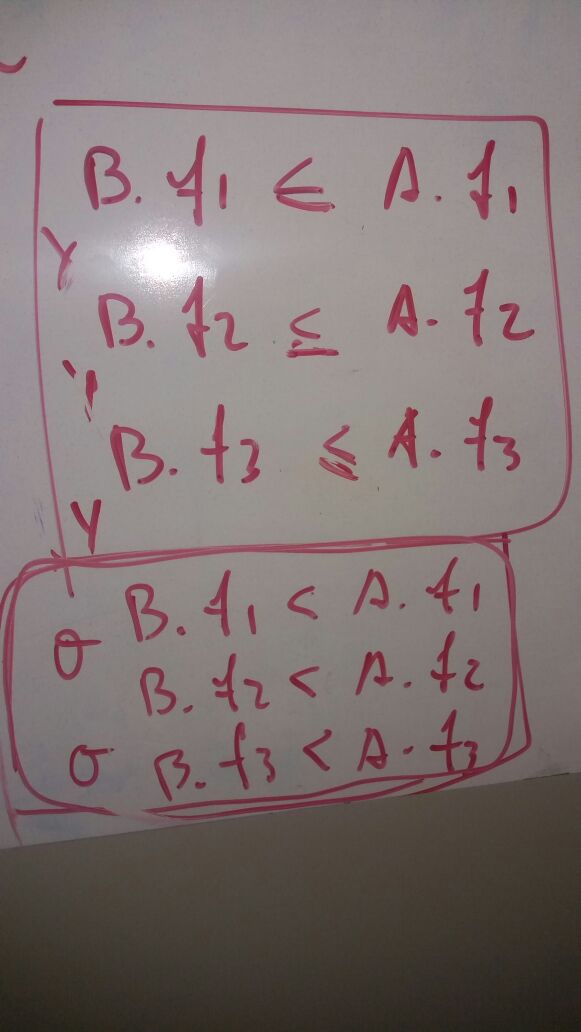 B. f1 ≤ A. f1
Y
B. f2 ≤ A. f2
Y
B. f3 ≤ A. f3
Y
B. f1 < A. f1
O
B. f2 < A. f2
O B. f3 < A. f3